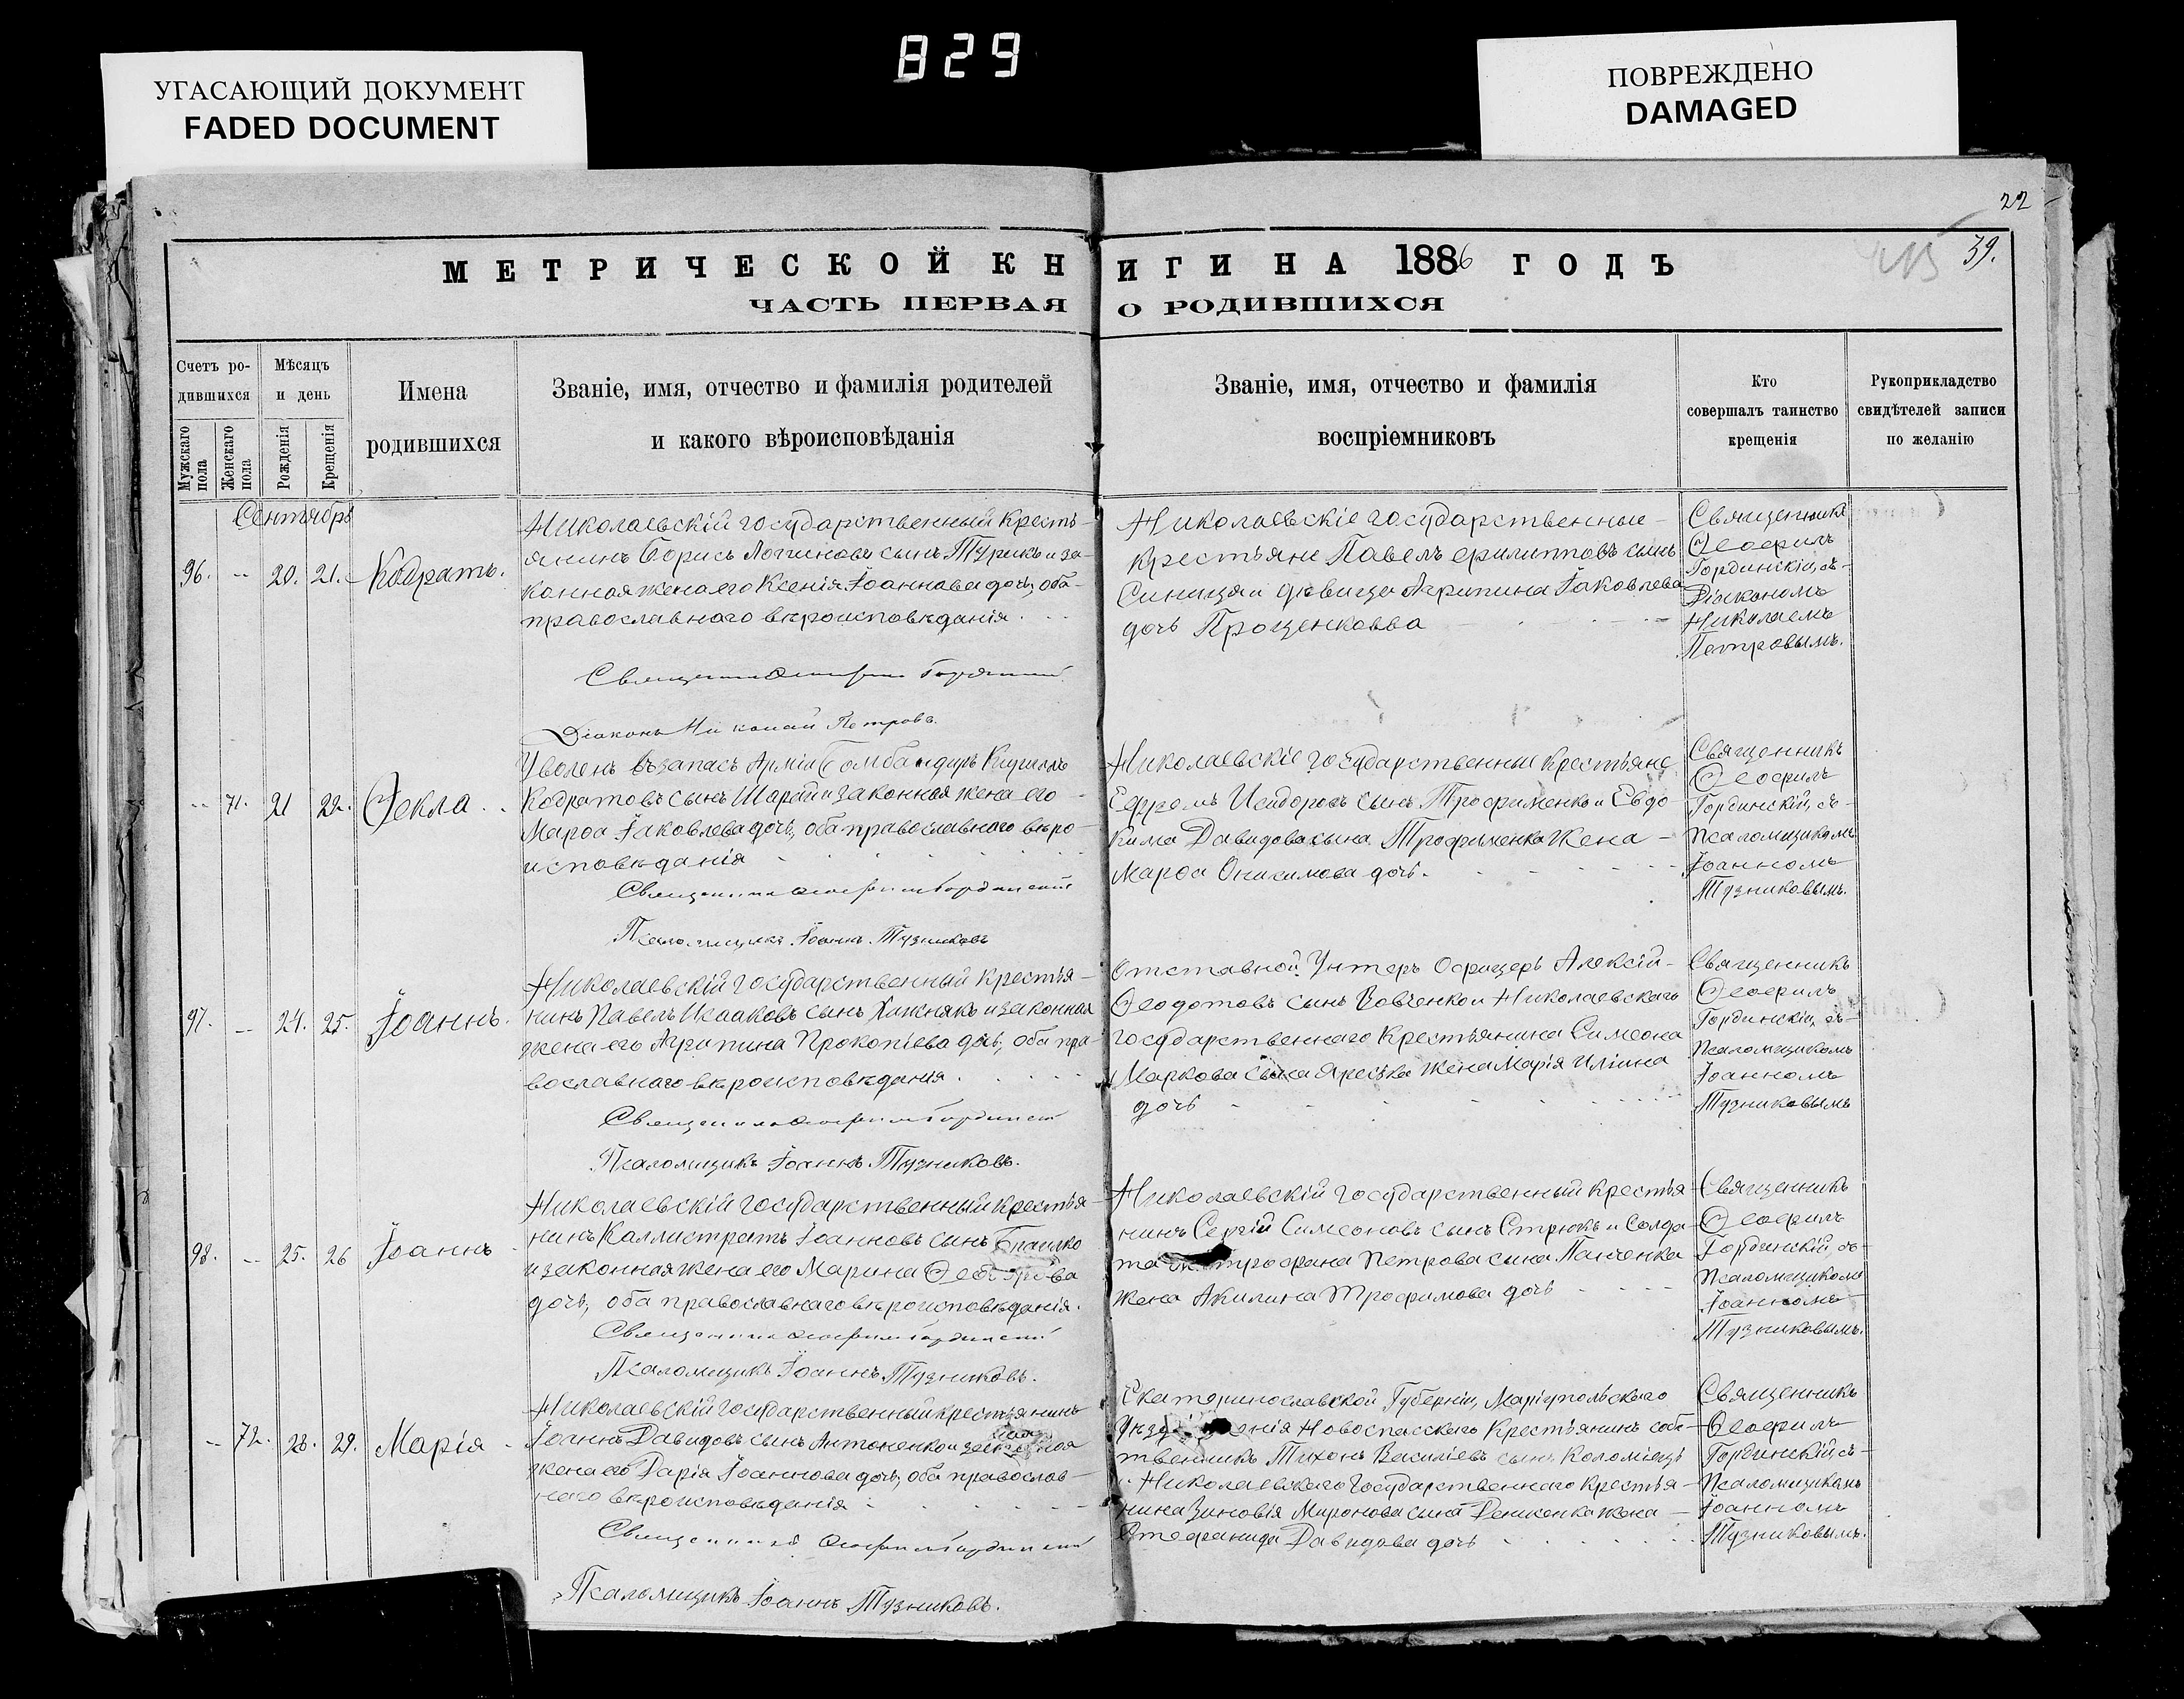 829
УГАСАЮЩИЙ ДОКУМЕНТ
FADED DOCUMENT
ПОВРЕЖДЕНО
DAMAGED
22
39.
МЕТРИЧЕСКОЙ КНИГИ НА 1886 ГОДЪ
ЧАСТЬ ПЕРВАЯ О РОДИВШИХСЯ
Счетъ ро-
дившихся
Мужскаго пола
Женскаго пола
Мѣсяцъ
и день
Рожденія
Крещенія
Имена
родившихся
Званіе, имя, отчество и фамилія родителей
и какого вѣроисповѣданія
Званіе, имя, отчество и фамилія
воспріемниковъ
Кто
совершалъ таинство
крещенія
Рукоприкладство
свидѣтелей записи
по желанію
Сентябрь
96. -- 20. 21. Кодратъ.
Николаевскій государственный кресть-
янинъ Борисъ Логгиновъ сынъ Турикъ и за-
конная жена его Ксенія Іоаннова дочь, оба
православнаго вѣроисповѣданія.
Діаконъ Николай Петровъ.
Николаевскіе государственные
крестьяне Павелъ Филипповъ сынъ
Синица и дѣвица Агрипина Іаковлева
дочь Проценкова
Священникъ
Ѳеофилъ
Гординскій, съ
Діакономъ
Николаемъ
Петровымъ.
-- 71. 21 22. Ѳекла
Уволенъ въ запасъ Арміи Бомбандиръ Кириллъ
Кодратовъ сынъ Шарай и законная жена его
Марѳа Іаковлева дочь, оба православнаго вѣро-
исповѣданія
Псаломщикъ Іоаннъ Тузниковъ
Николаевскіе государственные крестьяне
Ефремъ Исидоровъ сынъ Трофименко и Евдо-
кима Давидова сына Трофименка жена
Марѳа Онисимова дочь.
Священникъ
Ѳеофилъ
Гординскій, съ
Псаломщикомъ
Іоанномъ
Тузниковымъ.
97. -- 24. 25. Іоаннъ.
Николаевскій государственный крестья-
нинъ Павелъ Исааковъ сынъ Хижнякъ и законная
жена его Агрипина Прокопіева дочь, оба пра-
вославнаго вѣроисповѣданія.
Псаломщикъ Іоаннъ Тузниковъ.
Отставной Унтеръ Офицеръ Алексій
Ѳеодотовъ сынъ Вовченко и Николаевскаго
государственнаго крестьянина Симеона
Маркова сына Яреська жена Марія Иліина
дочь
Священникъ
Ѳеофилъ
Гординскій, съ
Псаломщикомъ
Іоанномъ
Тузниковымъ
98. -- 25. 26 Іоаннъ
Николаевскій государственный крестья-
нинъ Каллистратъ Іоанновъ сынъ
и законная жена его Марина
дочь, оба православнаго вѣроисповѣданія.
Псаломщикъ Іоаннъ Тузниковъ.
Николаевскій государственный крестья-
нинъ Сергій Симеоновъ сынъ Стрюкъ и Солда-
та Петрова сына Панченка
жена Акилина Трофимова дочь
Священникъ
Ѳеофилъ
Гординскій, съ
Псаломщикомъ
Іоанномъ
Тузниковымъ.
-- 72. 28. 29. Марія
Николаевскій государственный крестьянинъ
Іоаннъ Давидовъ сынъ Антоненко и законная
жена его Дарія Іоаннова дочь, оба православ-
наго вѣроисповѣданія
Псаломщикъ Іоаннъ Тузниковъ.
Екатеринославской Губерніи, Маріупольскаго
Новоспасскаго крестьянинъ собс-
твенникъ Тихонъ Василіевъ сынъ Коломіецъ
и Николаевскаго государственнаго крестья-
нина Зиновія Миронова сына жена
Стефанида Давидова дочь
Священникъ
Ѳеофилъ
Гординскій съ
Псаломщикомъ
Іоанномъ
Тузниковымъ.